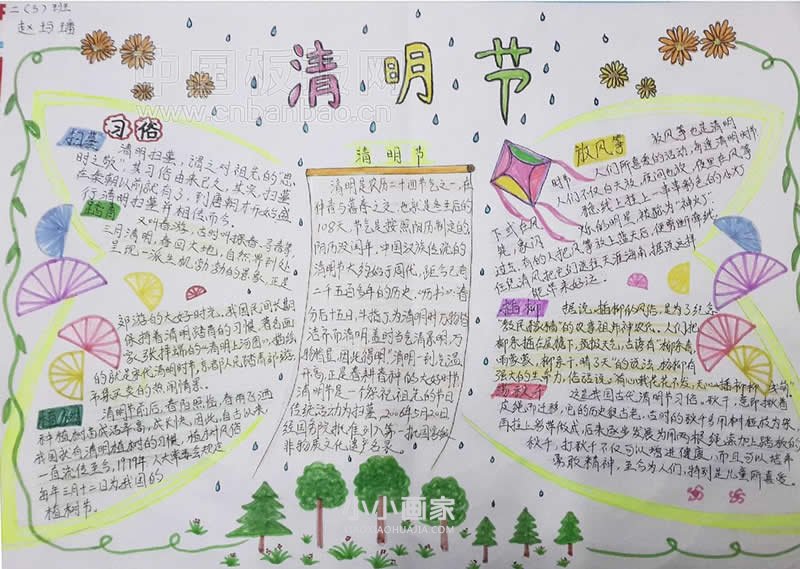 二（5）班
赵玛璠
中国板报网
www.cnbanbao.cn
清明节
习俗
扫墓
清明扫墓，谓之对祖先的"思
时之敬"其习俗由来已久。其实，扫墓
在秦朝以前就有了，到唐朝才开始盛
行清明扫墓并相传而今。
踏青
又叫春游，古时叫探春、寻春等。
三月清明，春回大地，自然界到处
呈现一派生机勃勃的景象，正是
郊游的大好时光，我国民间长期
保持着清明踏青的习惯。著名画
家张择端的"清明上河图"，描绘
的就是宋代清明时节，
市集交炎的热闹情景。
清明节前后，春阳照临，春雨飞洒
种植树苗成活率高，成长快，因此，自古以来
我国就有清明植树的习惯，植树风俗
一直流传至今，1979年，人大常委会规定
每年三月十二日为我国的
植树节。
清明节
清明是农历二十四节气之一，在
仲春与暮春之交，也就是冬至后的
108天。节气是按照阴历制定的
阴历没闰年。中国汉族传统的
清明节大约始于周代，距今已有
二千五百多年的历史。《历书》："春
分后十五日，斗指丁，为清明，时万物皆
洁齐而清明，盖时当气清景明，万
物皆显，因此得明"清明一到，气温
升高，正是春耕春种的大好时节，
清明节是一个祭祀祖先的节日
传统活动为扫墓。2006年5月20日
经国务院批准列入第一批国家级
非物质文化遗产名录。
放风筝
放风筝也是清明
时节人们所喜爱的活动，每逢清明时节
人们不仅白天放，夜间也放，夜里在风筝
下或在风
过去，有的人把风筝放上蓝天后，便剪断牵线，
任凭清风把它们送往天涯海角，据说这样
能带来好运。
插柳
据说，插柳的风俗，是为了纪念
"教民稼穑"的农事祖师神农氏。人们把
柳条插在屋檐下，预报天气，古谚有"柳条青，
雨蒙蒙，柳条干，晴了天"的说法，杨柳有
强大的生命力，俗话说："有心栽花花不发，无心插柳柳成荫"
荡秋千
这是我国古代清明节习俗。秋千，意即揪着
皮绳而迁移，它的历史很古老，古时的秋千多用树枝桠为架，
再拴上彩带做成，后来逐步发展为用两根绳索加上踏板的
秋千，打秋千不仅可以增进健康，而且可以培养
勇敢精神，至今为人们，特别是儿童所喜爱。
小小画家
XIAOXIAOHUAJIA.COM